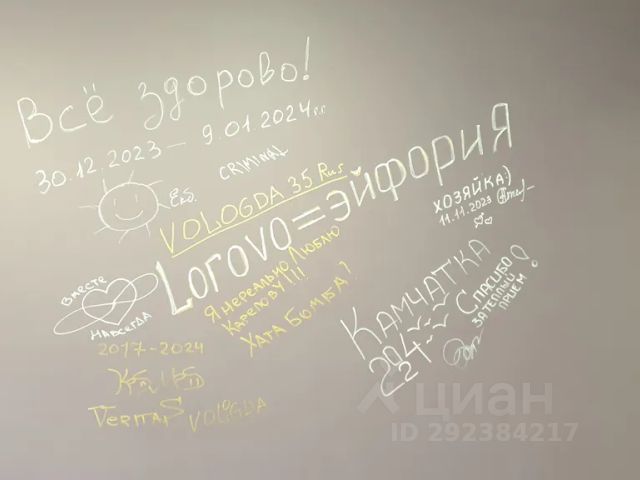 Всё здорово!
30.12.2023 — 9.01.2024 г.г.
CRIMINAL
VOLOGDA 35 Rus
Lorovo=эйфориЯ
хозяйка:)
11.11.2023
Вместе
навсегда
2017-2024
Я нереально люблю
Карелову!!!
Хата Бомба?
КАМЧАТКА
2024
Спасибо
за теплый
прием!
VeritaS VOLOGDA
циан
ID 292384217